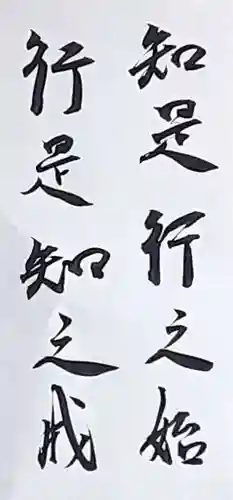 知是行之始
行是知之成